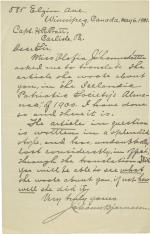 535 Elgin Ave.
Winnipeg, Canada, May 6,
Capt.
Carlisle Pa.
Dear Sir
Miss
asked me to translate the
article she wrote about
you, in the Icelandic
Patriotic Society's Almanac
of 1900. I have done
so and here it is.
The article in question
is written in a splendid
style, and has, undoubtedly
lost considerably, in
through the translation. But
you will be able to see what
she wrote about you if not how
well she did it.
Very truly yours